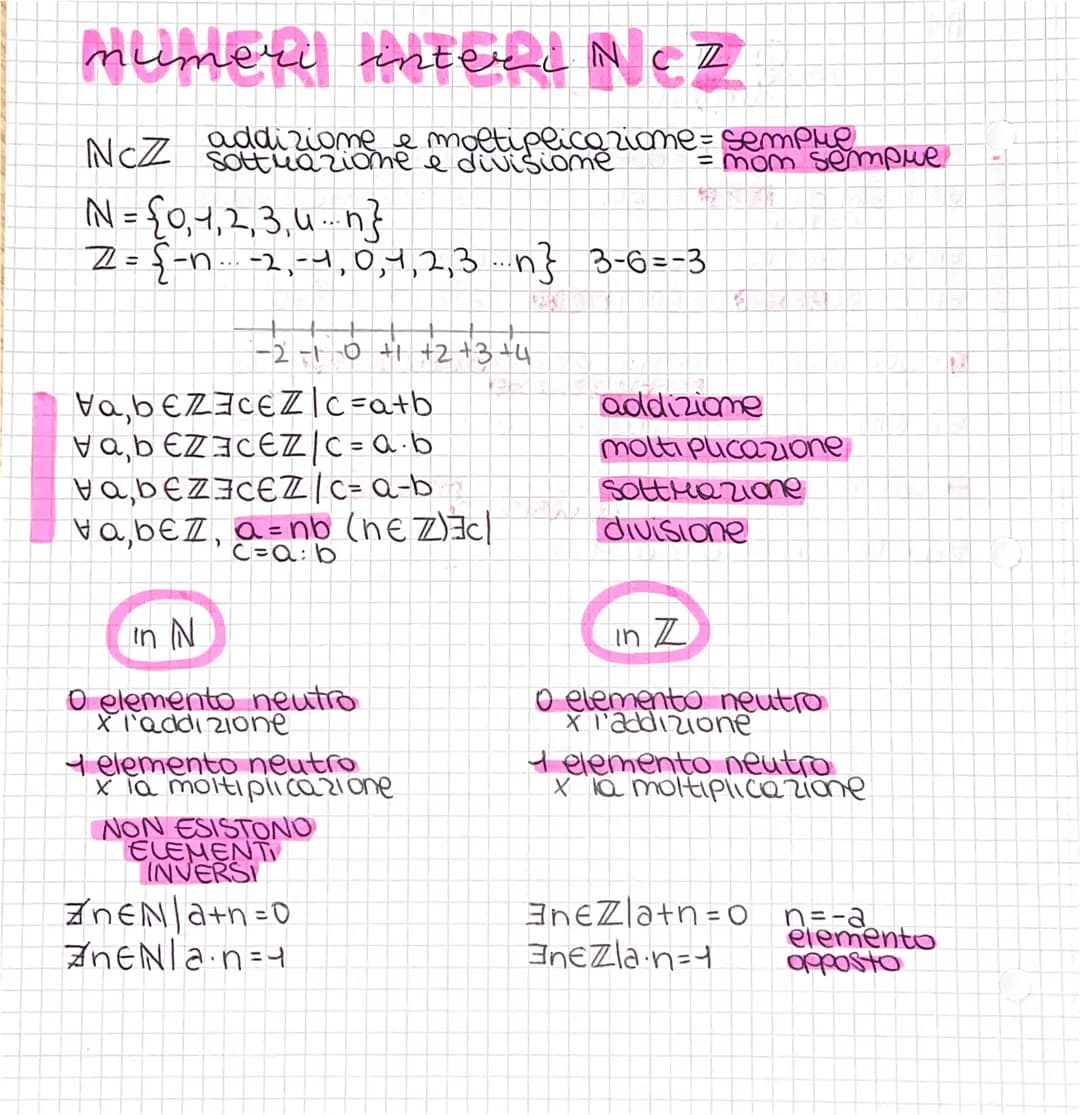 NUMERI INTERI N⊂Z
numeri interi ℕ ⊂ ℤ
ℕ⊂ℤ addizione e moltiplicazione = sempre
sottrazione e divisione = non sempre
ℕ = {0,1,2,3,4...n}
ℤ = {-n... -2,-1,0,1,2,3 ...n} 3-6=-3
-2 -1 0 +1 +2 +3 +4
∀a,b∈ℤ∃c∈ℤ|c=a+b addizione
∀a,b∈ℤ∃c∈ℤ|c=a·b moltiplicazione
∀a,b∈ℤ∃c∈ℤ|c=a-b sottrazione
∀a,b∈ℤ, a=nb (n∈ℤ)∃c| divisione
c=a:b
in ℕ
0 elemento neutro
x l'addizione
1 elemento neutro
x la moltiplicazione
NON ESISTONO
ELEMENTI
INVERSI
∄n∈ℕ|a+n=0
∄n∈ℕ|a·n=1
in ℤ
0 elemento neutro
x l'addizione
1 elemento neutro
x la moltiplicazione
∃n∈ℤ|a+n=0 n=-a
elemento
∃n∈ℤ|a·n=1 opposto